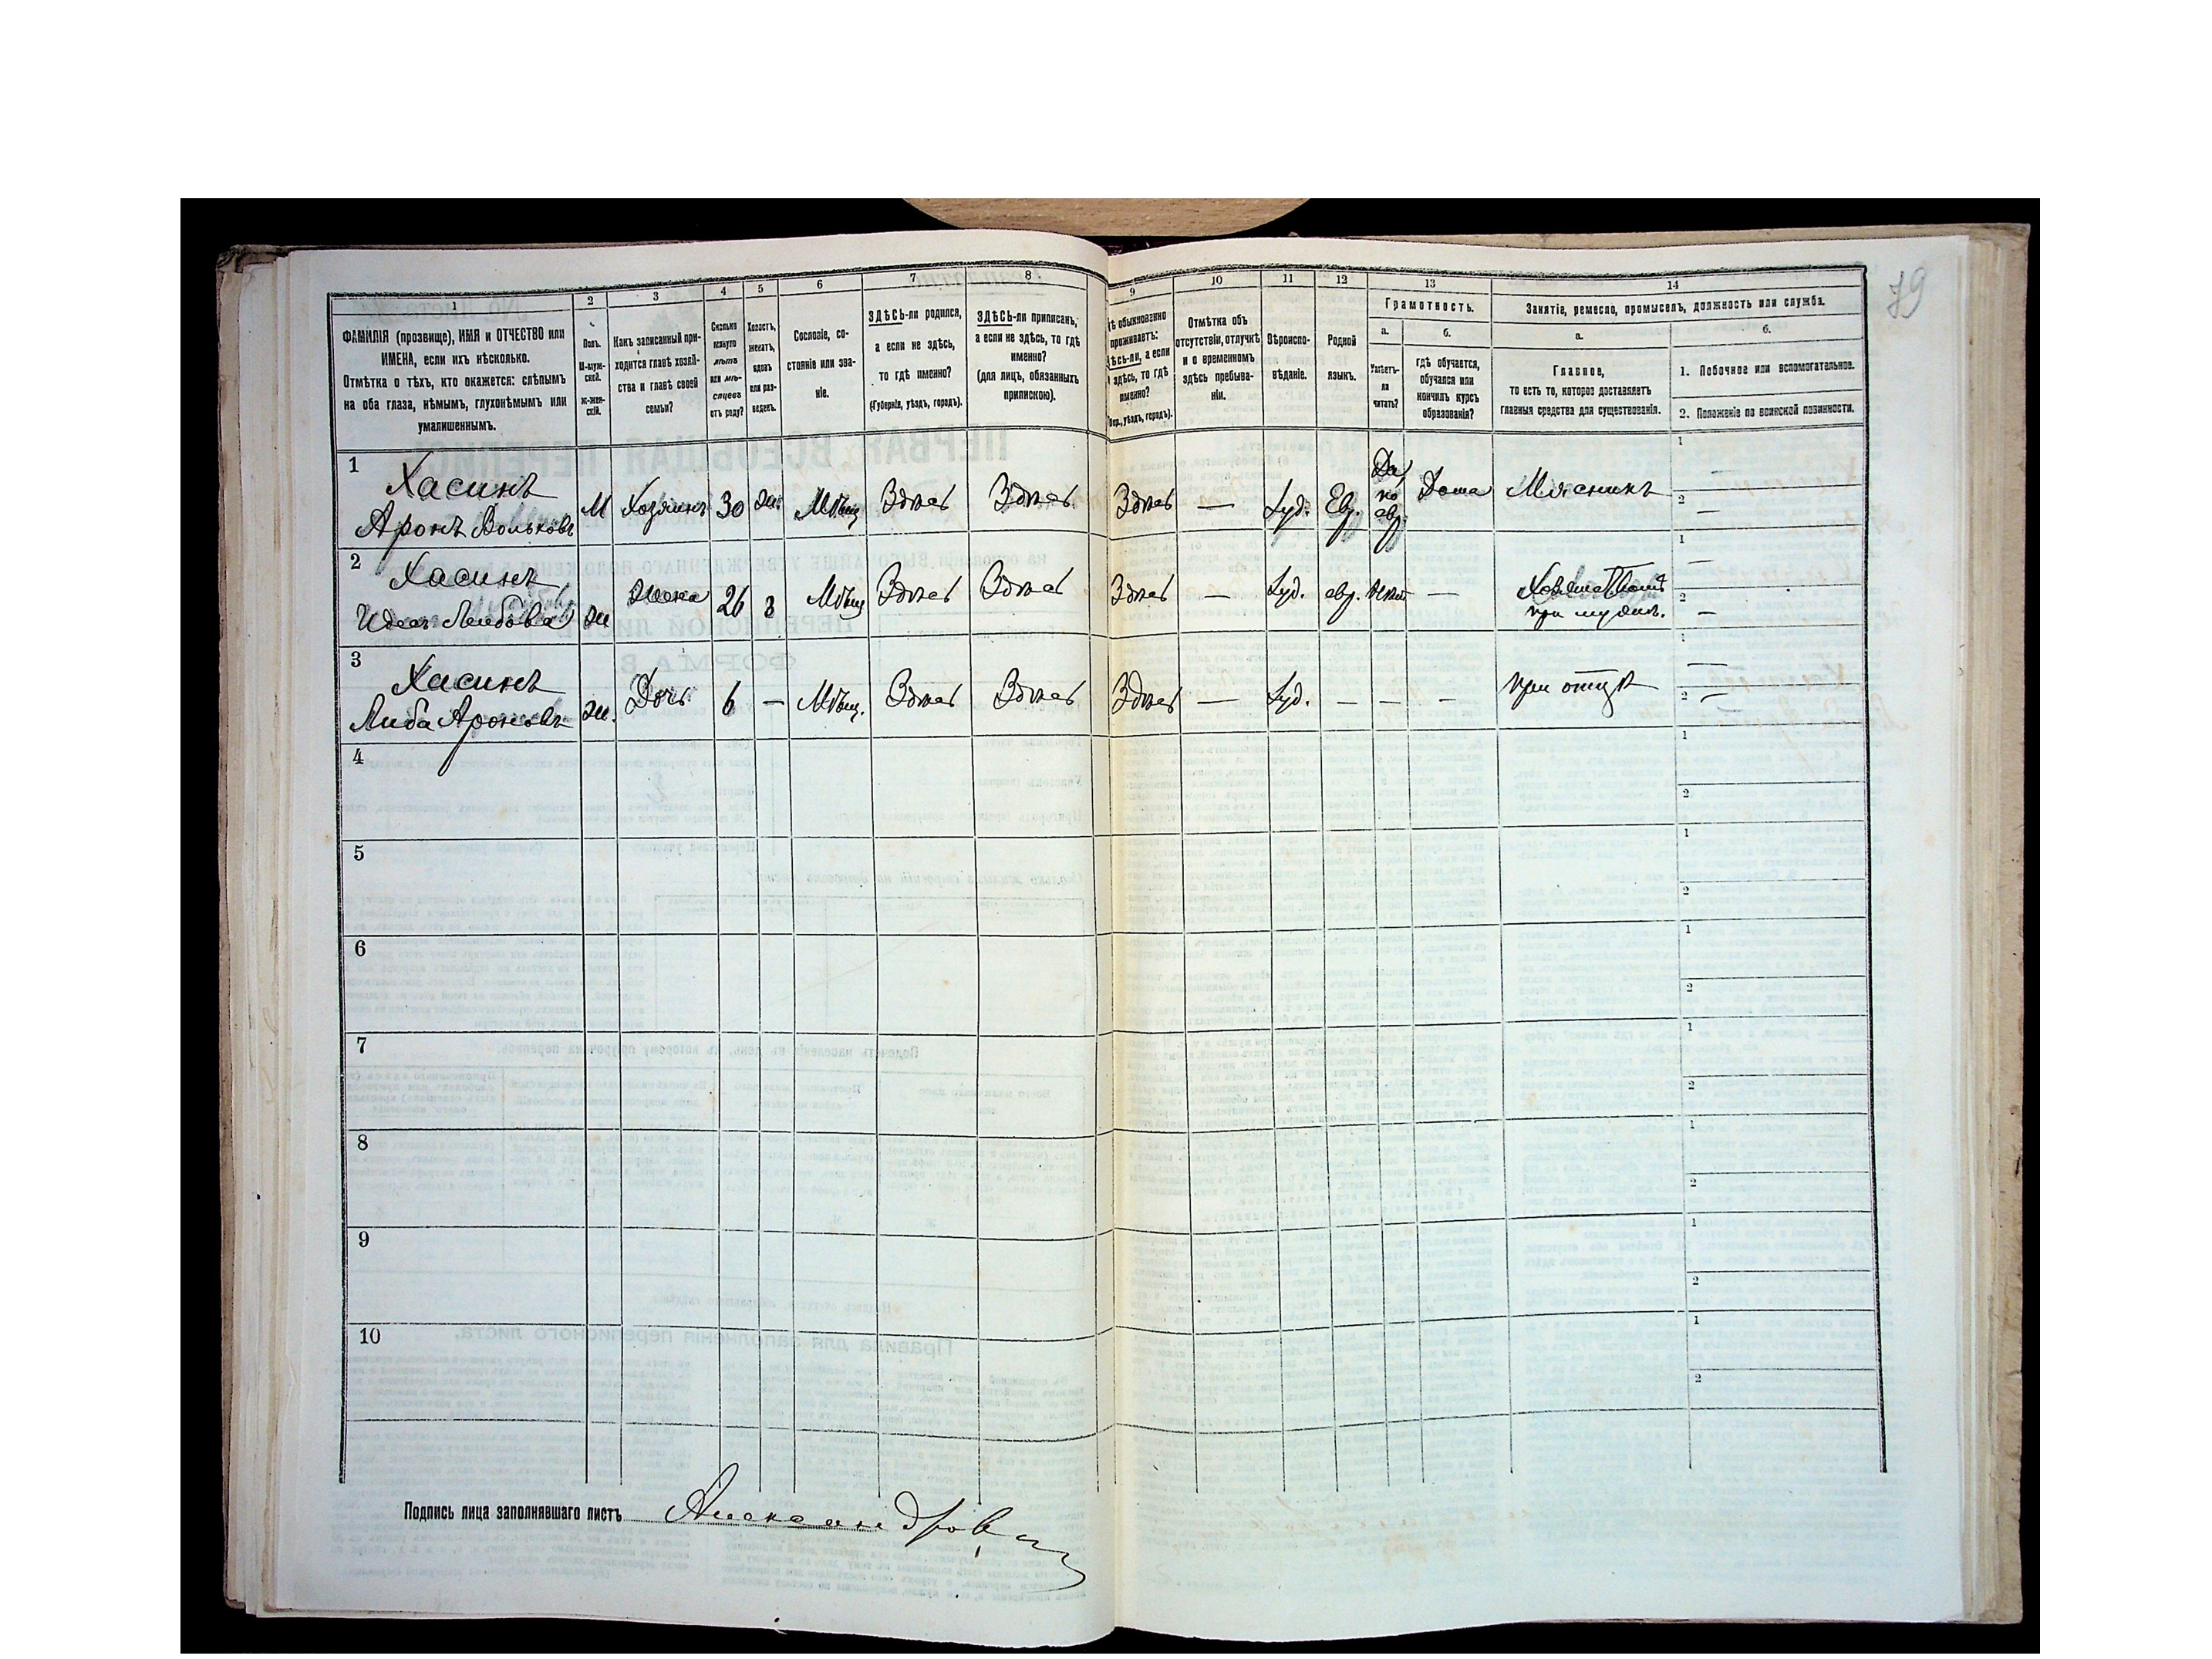 79
1 2 3 4 5 6 7 8 9 10 11 12 13 14
ФАМИЛІЯ (прозвище), ИМЯ и ОТЧЕСТВО или
ИМЕНА, если ихъ нѣсколько.
Отмѣтка о тѣхъ, кто окажется: слѣпымъ
на оба глаза, нѣмымъ, глухонѣмымъ или
умалишеннымъ.
Полъ.
М-муж-
ской.
Ж-жен-
скій.
Какъ записанный при-
ходится главѣ хозяй-
ства и главѣ своей
семьи?
Сколько
минуло
лѣтъ
или мѣ-
сяцевъ
отъ роду?
Холостъ,
женатъ,
вдовъ
или раз-
веденъ.
Сословіе, со-
стояніе или зва-
ніе.
ЗДѢСЬ-ли родился,
а если не здѣсь,
то гдѣ именно?
(Губернія, уѣздъ, городъ).
ЗДѢСЬ-ли приписанъ,
а если не здѣсь, то гдѣ
именно?
(для лицъ, обязанныхъ
припискою).
обыкновенно
проживаетъ:
здѣсь-ли, а если
здѣсь, то гдѣ
именно?
уѣздъ, городъ).
Отмѣтка объ
отсутствіи, отлучкѣ
и о временномъ
здѣсь пребыва-
ніи.
Вѣроиспо-
вѣданіе.
Родной
языкъ.
Грамотность.
а. б.
Умѣетъ-
ли
читать?
гдѣ обучается,
обучался или
кончилъ курсъ
образованія?
Занятіе, ремесло, промыселъ, должность или служба.
а. б.
Главное,
то есть то, которое доставляетъ
главныя средства для существованія.
1. Побочное или вспомогательное.
2. Положеніе по воинской повинности.
1 Хасинъ
Аронъ Вольковъ М Хозяинъ 30 ж. Мѣщ Здѣсь Здѣсь Здѣсь — Іуд. Евр. Да, по евр. Дома Мясникъ 1 — 2 —
2 Хасинъ
Лейбова ж Жена 26 з Мѣщ Здѣсь Здѣсь Здѣсь — Іуд. евр. — 1 — 2 —
при мужѣ.
3 Хасинъ
Либа Аронова ж. Дочь 6 — Мѣщ. Здѣсь Здѣсь Здѣсь — Іуд. — — — при отцѣ 1 — 2 —
4 1 2
5 1 2
6 1 2
7 1 2
8 1 2
9 1 2
10 1 2
Подпись лица заполнявшаго листъ Александров